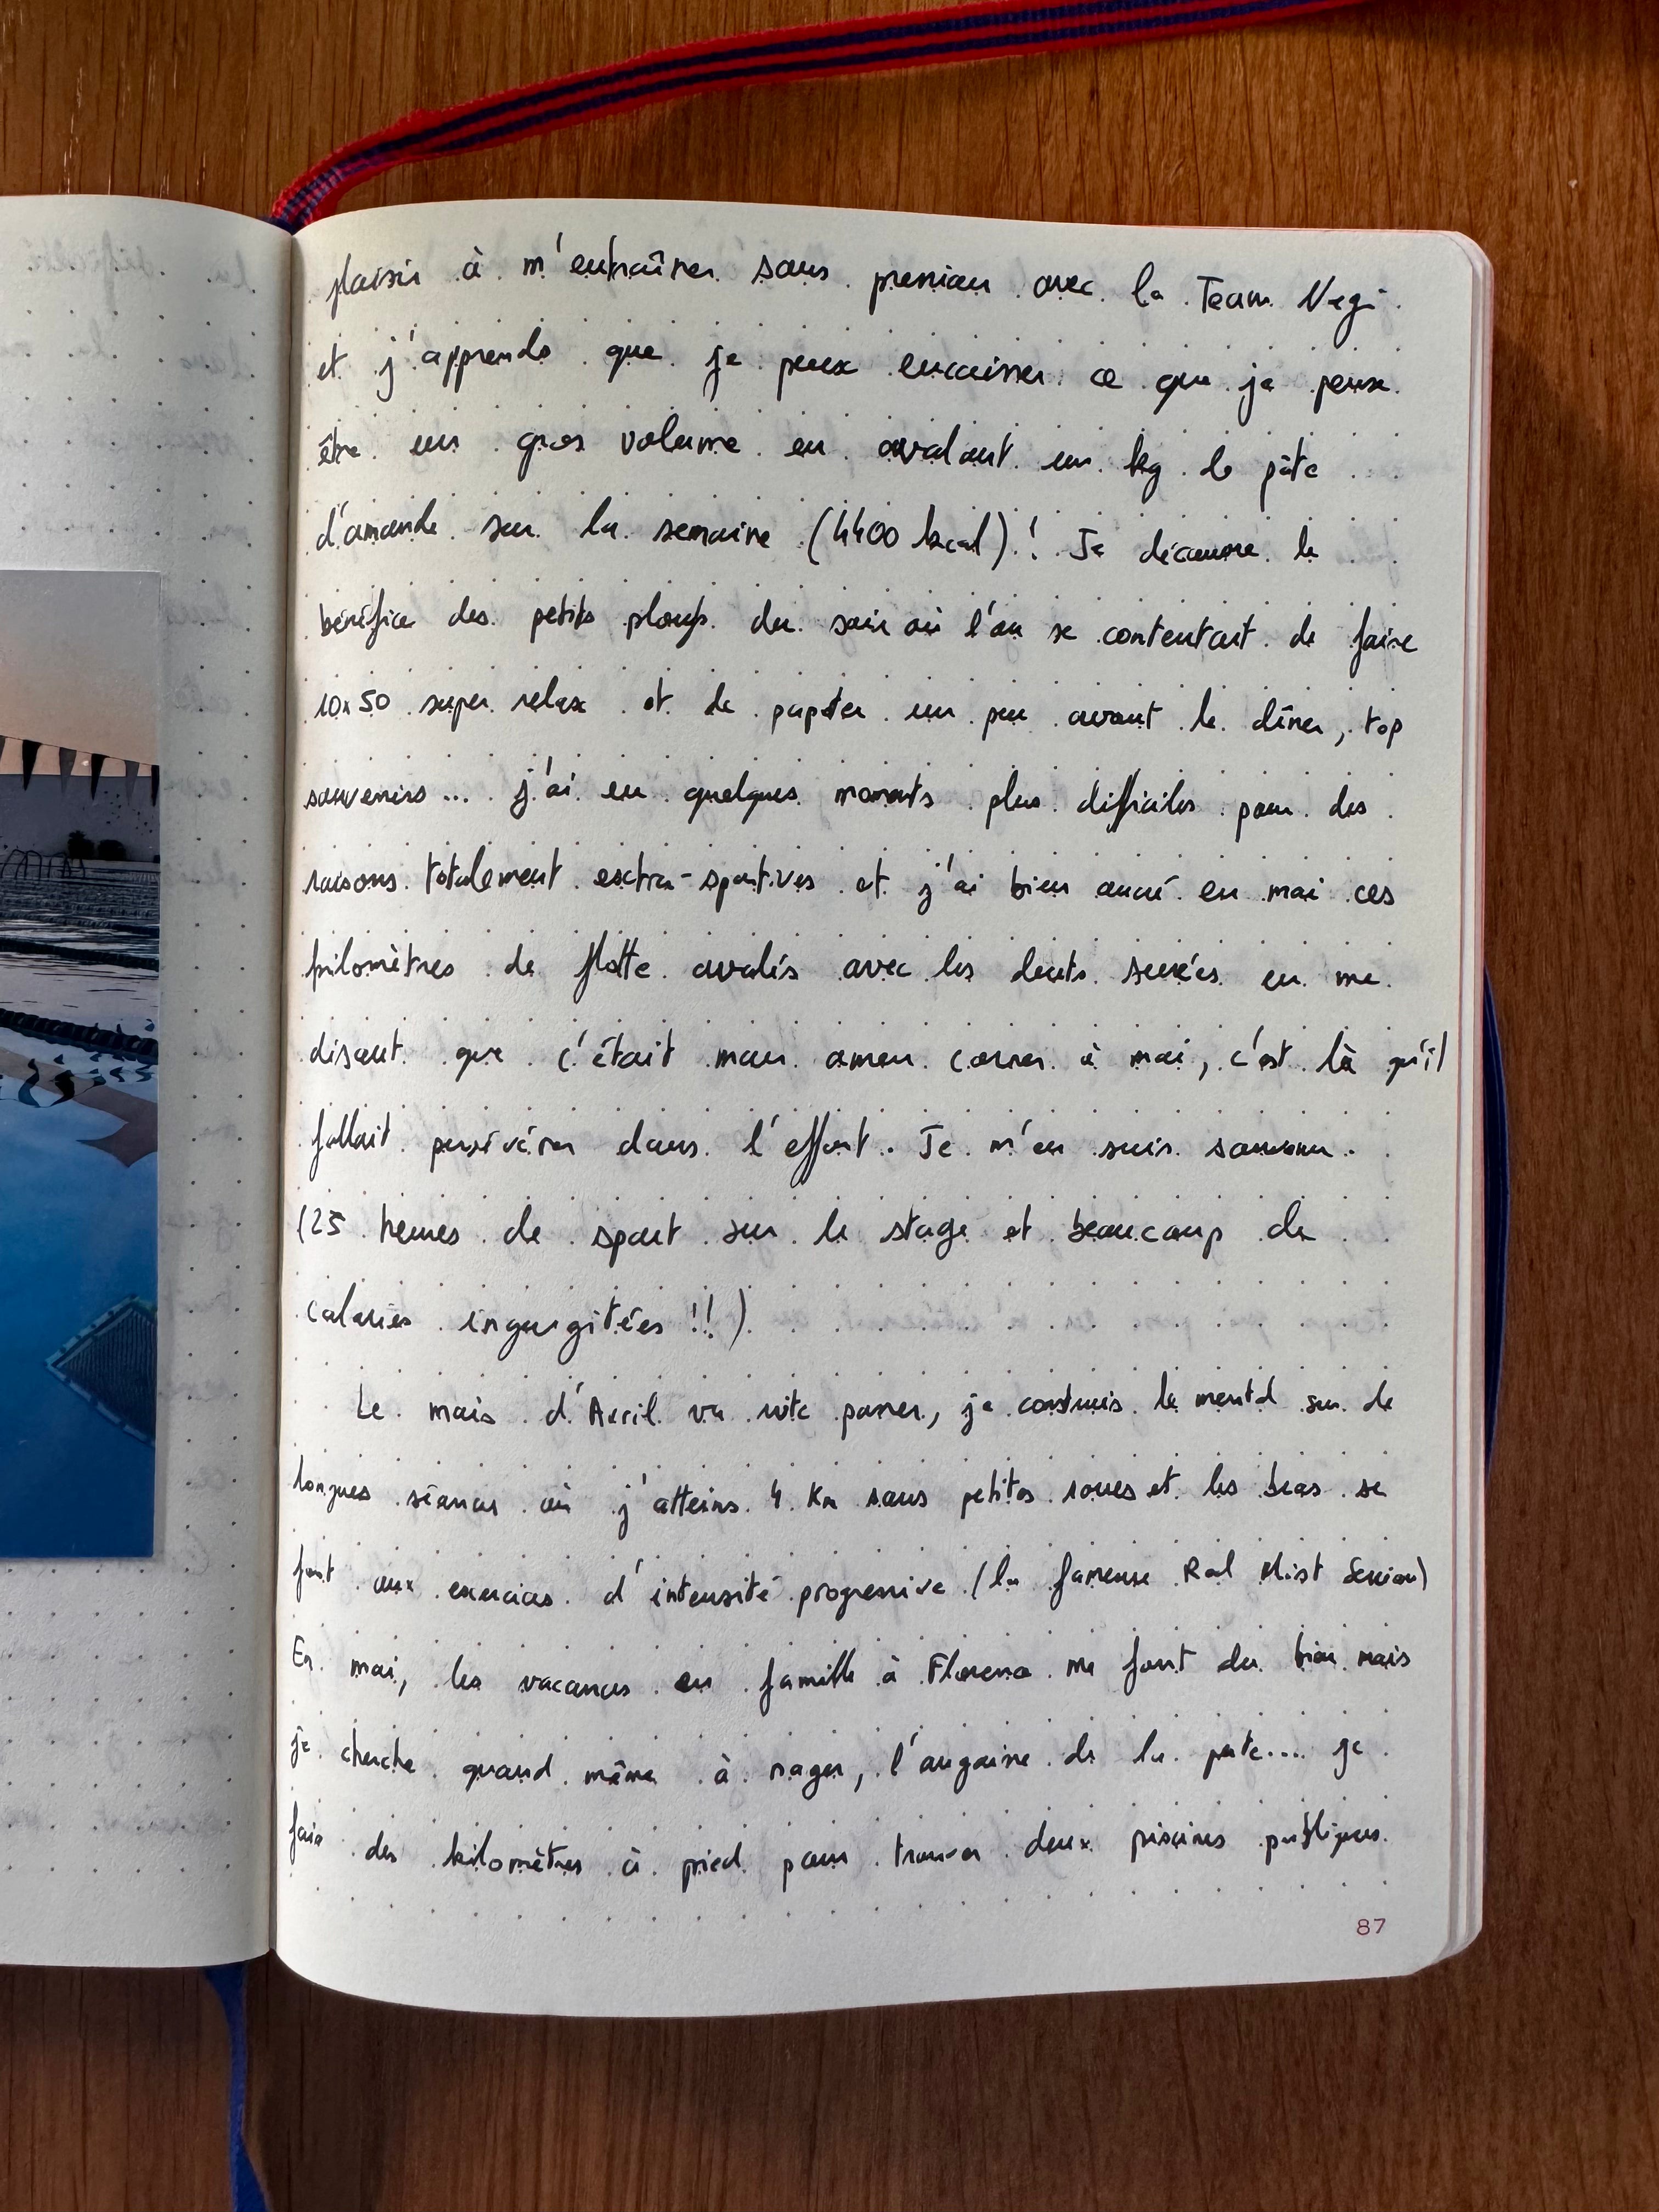 plaisir à m'entraîner sans pression avec la Team Vegi
et j'apprends que je peux encaisser ce que je pense
être un gros volume en avalant un kg de pâte
d'amande sur la semaine (4400 kcal) ! Je découvre le
bénéfice des petits ploufs du soir où l'on se contentait de faire
10x50 super relax et de papoter un peu avant le dîner, top
souvenirs... j'ai eu quelques moments plus difficiles pour des
raisons totalement extra-sportives et j'ai bien ancré en moi ces
kilomètres de flotte avalés avec les dents serrées en me
disant que c'était mon amen corner à moi, c'est là qu'il
fallait persévérer dans l'effort. Je m'en suis souvenu.
(25 heures de sport sur le stage et beaucoup de
calories ingurgitées !!)
Le mois d'Avril va vite passer, je construis le mental sur de
longues séances où j'atteins 4 Km sans petites roues et les bras se
font aux exercices d'intensité progressive (la fameuse Red Mist Session)
En mai, les vacances en famille à Florence me font du bien mais
je cherche quand même à nager, l'angoisse de la perte.... je
fais des kilomètres à pied pour trouver deux piscines publiques.
87